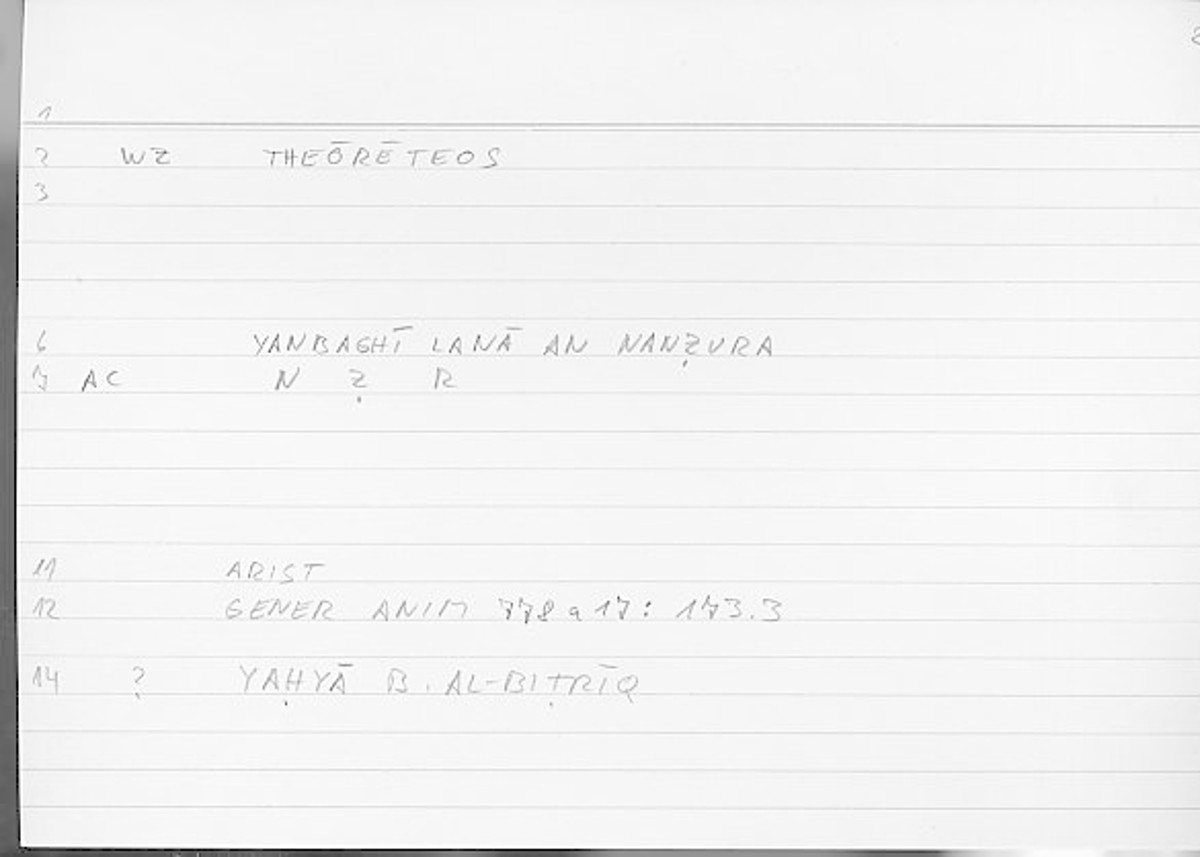 1
2 WZ THEŌRĒTEOS
3
6 YANBAGHĪ LANĀ AN NANẒURA
7 AC N Ẓ R
11 ARIST
12 GENER ANIM 778 a 17: 173.3
14 ? YAḤYĀ B. AL-BIṬRĪQ